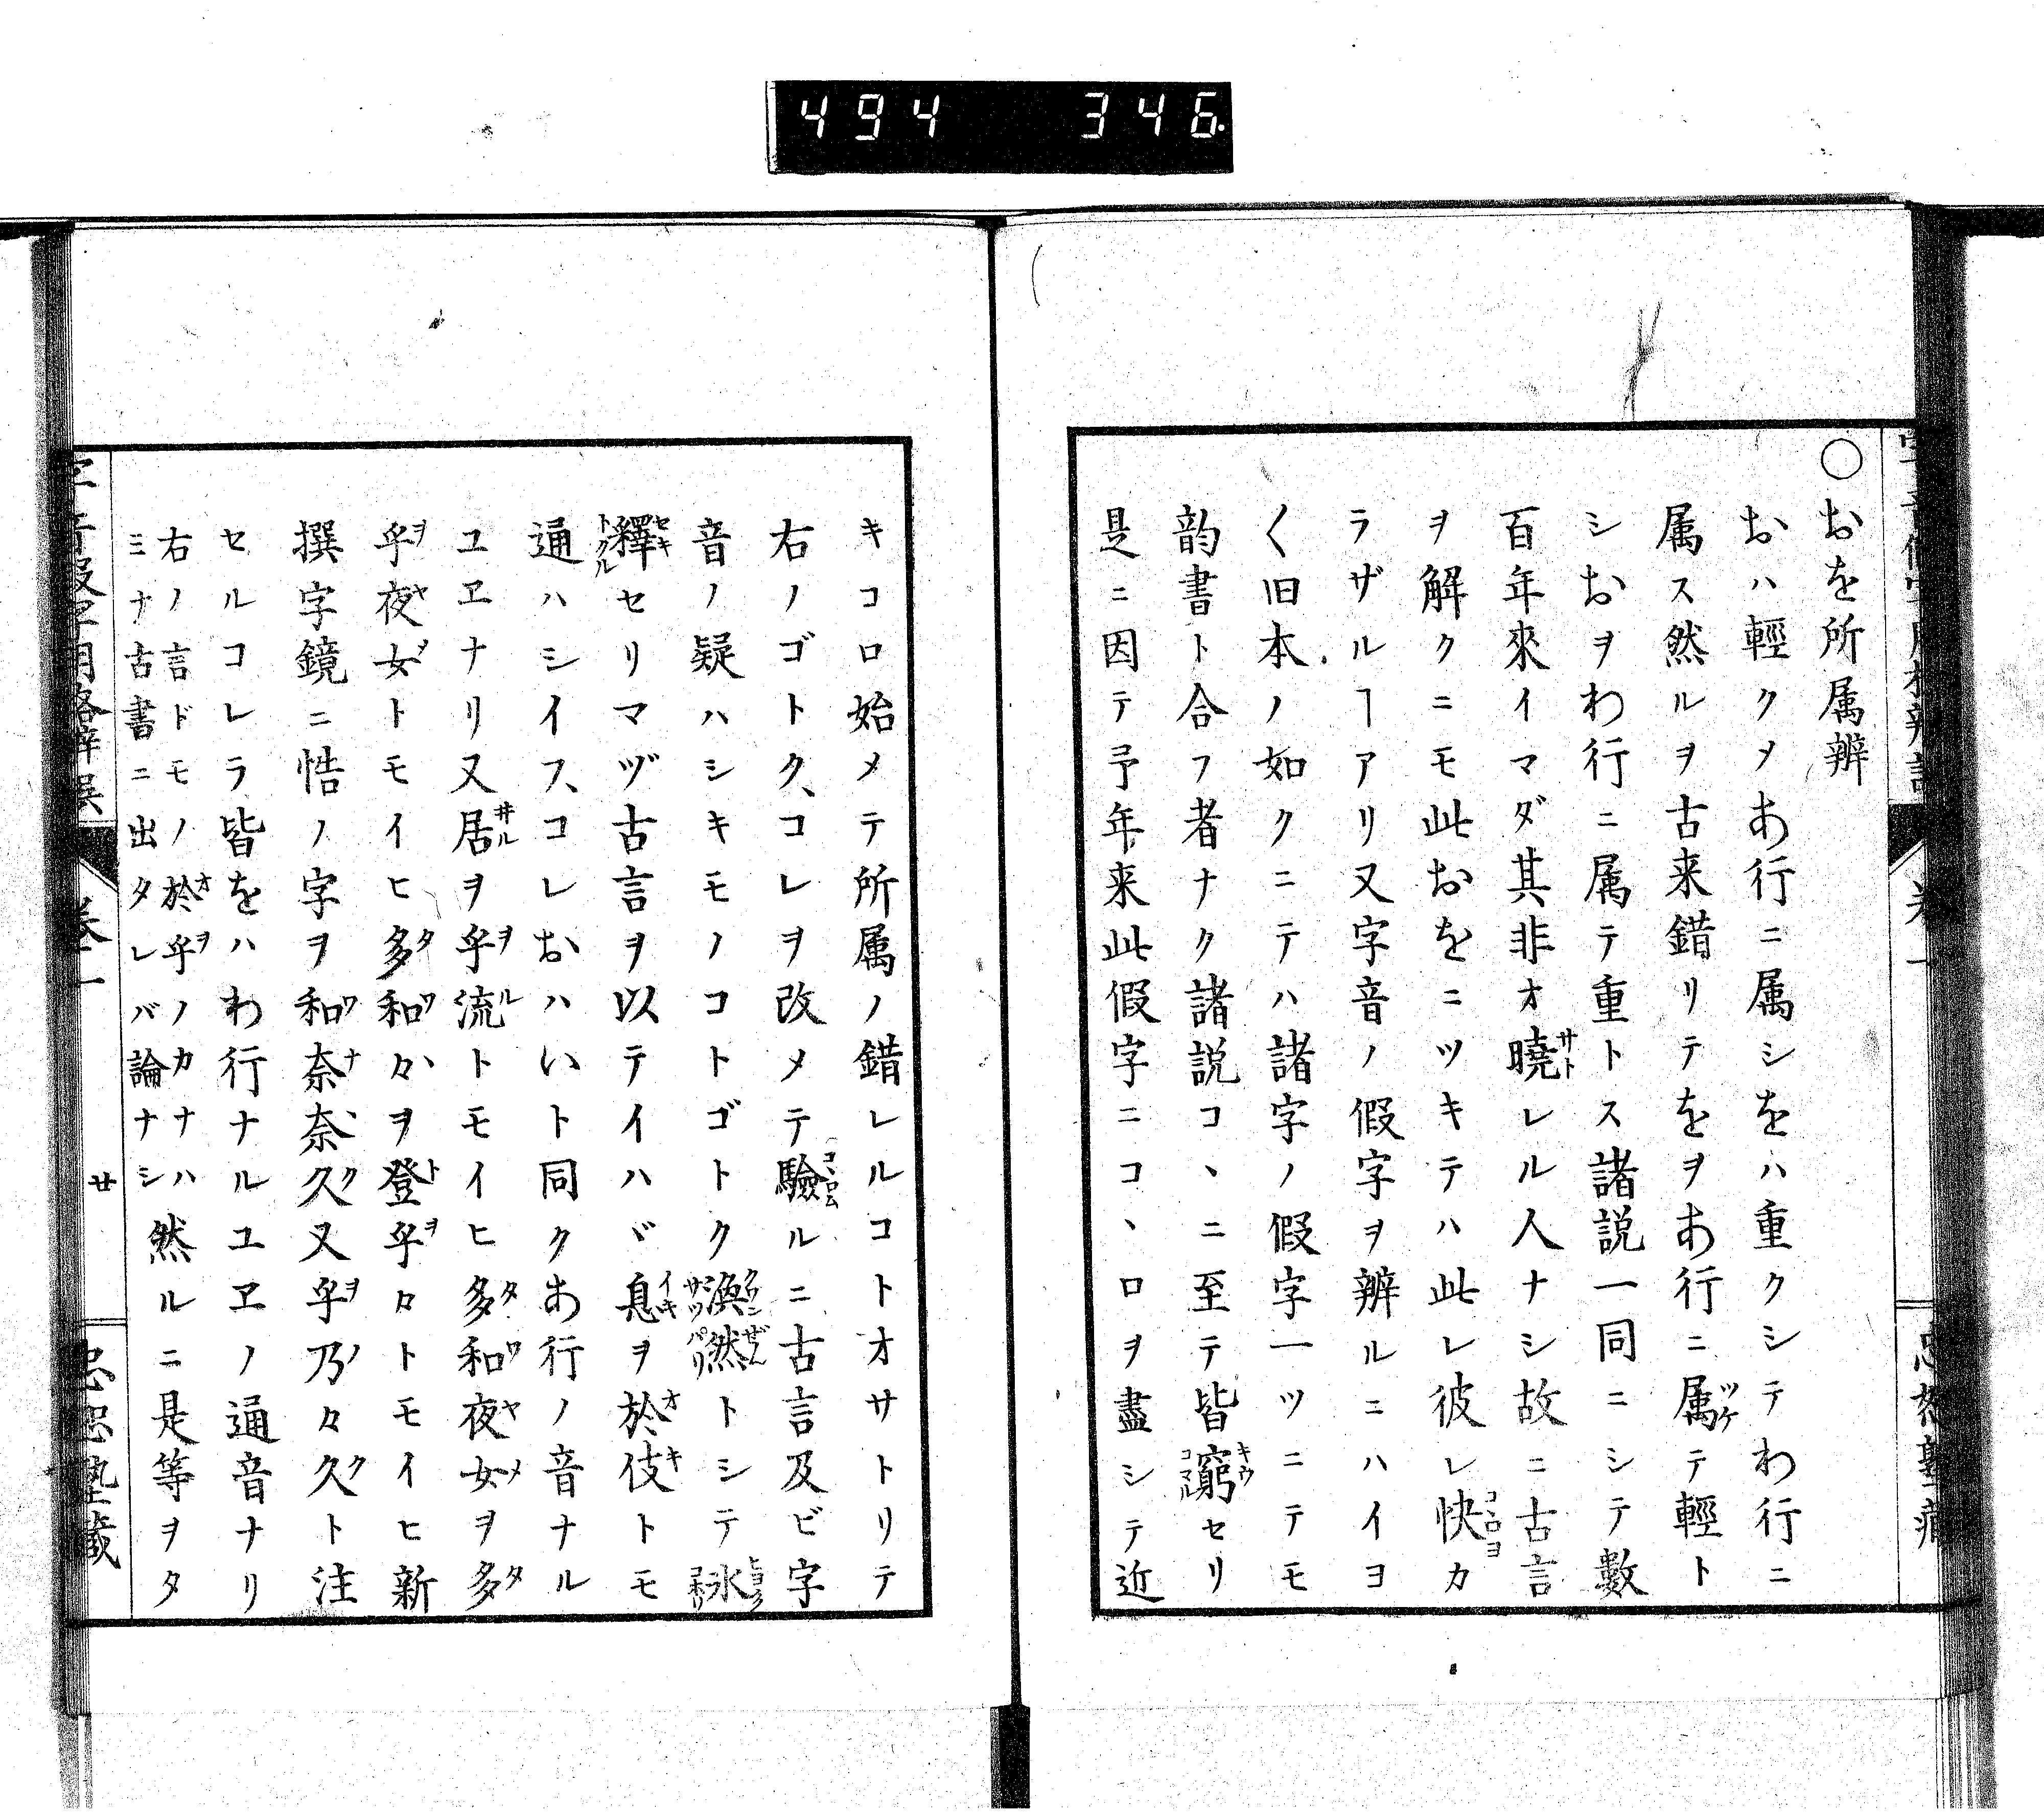 494 346
○おを所属辨
おハ輕クメあ行ニ属シをハ重クシテわ行ニ
属ス然ルヲ古来錯リテをヲあ行ニ属テ輕ト
シおヲわ行ニ属テ重トス諸説一同ニシテ數
百年來イマダ其非オ曉レル人ナシ故ニ古言
ヲ解クニモ此おをニツキテハ此レ彼レ快カ
ラザルヿアリ又字音ノ假字ヲ辨ルニハイヨ
〱旧本ノ如クニテハ諸字ノ假字一ツニテモ
韵書ト合フ者ナク諸説コヽニ至テ皆窮セリ
是ニ因テ予年来此假字ニコヽロヲ盡シテ近
キコロ始メテ所属ノ錯レルコトオサトリテ
右ノゴトク、コレヲ改メテ驗ルニ古言及ビ字
音ノ疑ハシキモノコトゴトク渙然トシテ氷
釋セリマヅ古言ヲ以テイハバ息ヲ於伎トモ
通ハシイフ、コレおハいト同クあ行ノ音ナル
ユヱナリ又居ヲ乎流トモイヒ多和夜女ヲ多
乎夜女トモイヒ多和々ヲ登乎〻トモイヒ新
撰字鏡ニ悎ノ字ヲ和奈奈久又乎乃々久ト注
セルコレラ皆をハわ行ナルユヱノ通音ナリ
右ノ言ドモノ於乎ノカナハ
ミナ古書ニ出タレバ論ナシ
然ルニ是等ヲタ
卷一
廿
忠恕塾藏